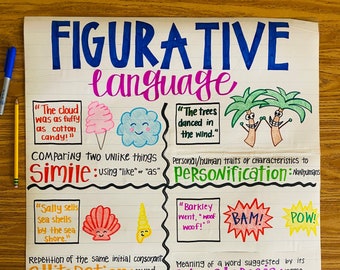 FIGURATIVE
language
"The cloud
was as fluffy
as cotton
candy!"
COMPARING two UNlike things
SIMILE: using "like" or "as"
"The trees
danced in
the wind."
Personal/human traits or characteristics to
PERSONIFICATION:
"Sally sells
sea shells
by the sea
shore."
Repetition of the same initial consonant
"Barkley
went, "woof
woof!"
BAM!
POW!
Meaning of a word suggested by its